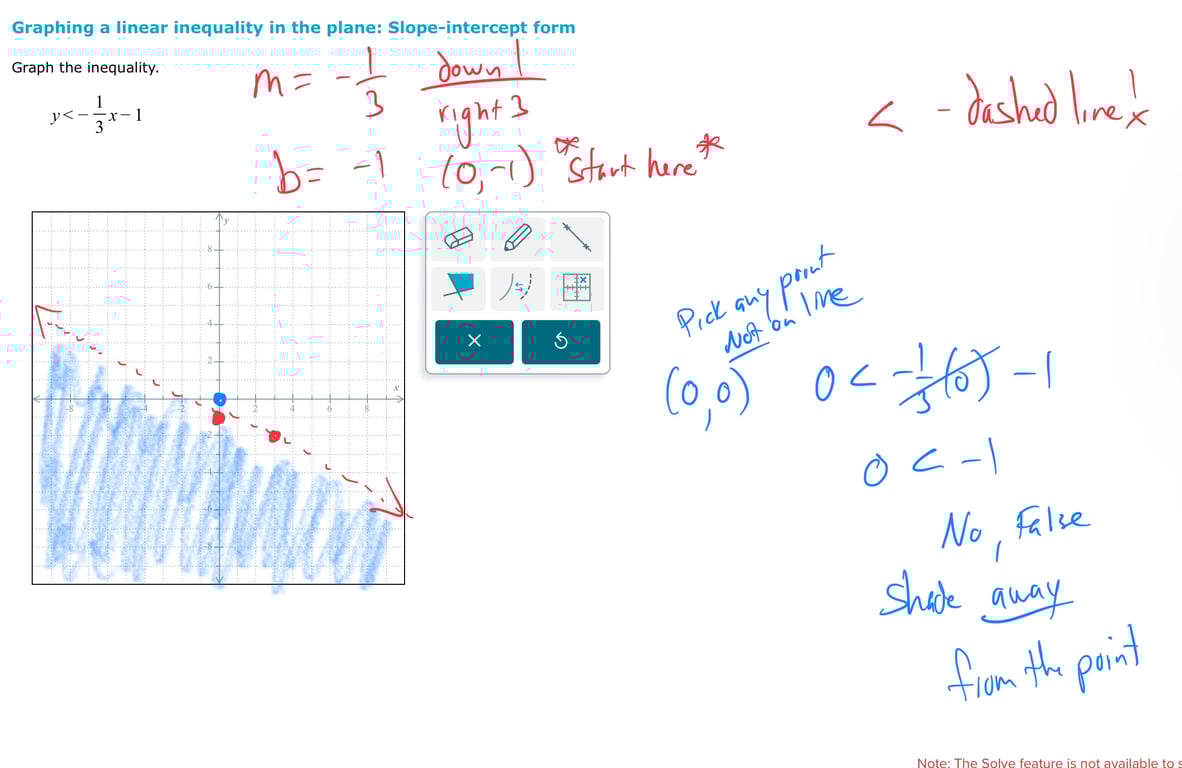 Graphing a linear inequality in the plane: Slope-intercept form
Graph the inequality.
y < - 1/3 x - 1
m = - 1/3
down 1
right 3
b = -1 (0, -1) *start here*
< - dashed line!
y
8
6
4
2
x
-8 -6 -4 -2 2 4 6 8
-2
-4
-6
-8
Pick any point
Not on line
(0,0) 0 < - 1/3 (0) - 1
0 < -1
No, False
Shade away
from the point
Note: The Solve feature is not available to s